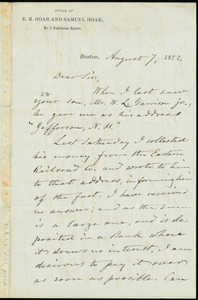 OFFICE OF
E. R. HOAR AND SAMUEL HOAR,
Boston, August 7, 1872
Dear Sir,
When I last saw
your son, Mr. W. L. Garrison jr.,
he gave me as his address
"Jefferson, N. H."
Last Saturday I collected
his money from the Eastern
Railroad Co. and wrote to him
to that address, informing him
of the fact. I have received
no answer; and as the sum
is a large one, and is de-
posited in a Bank where
it draws no interest, I am
desirous to pay it over
as soon as possible. Can